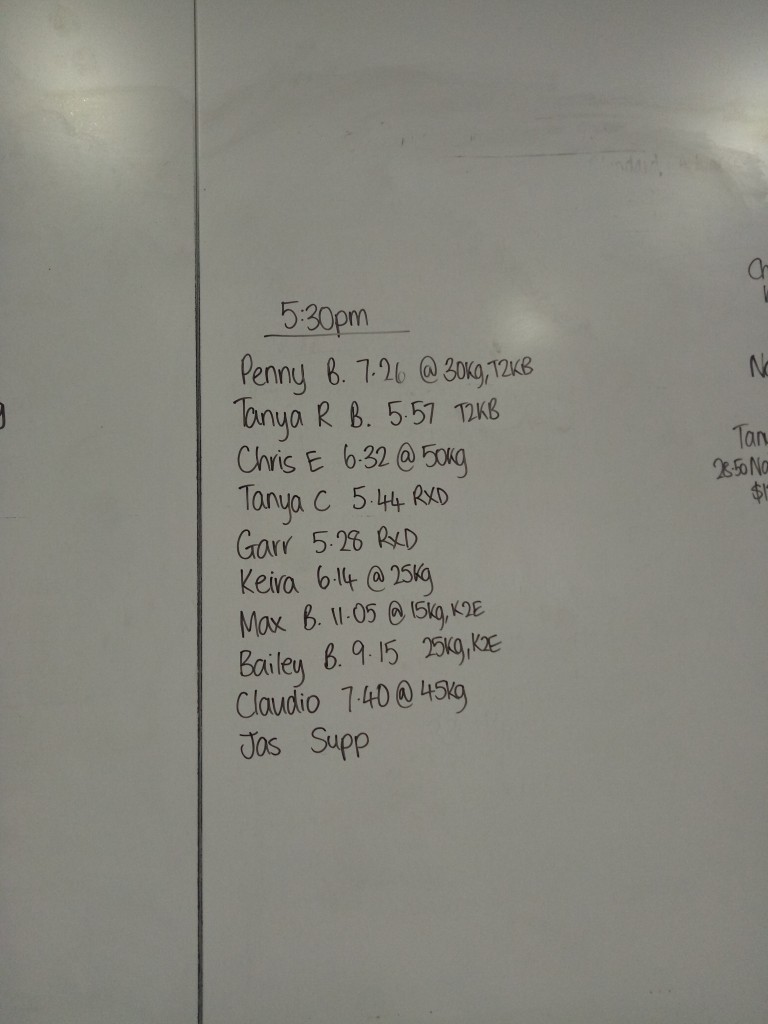 5:30pm
Penny B. 7.26 @ 30kg, T2KB
Tanya R B. 5.57 T2KB
Chris E 6.32 @ 50kg
Tanya C 5.44 RXD
Garr 5.28 RXD
Keira 6.14 @ 25kg
Max B. 11.05 @ 15kg, K2E
Bailey B. 9.15 25kg, K2E
Claudio 7.40 @ 45kg
Jas Supp
Ch
No
Tan
28.50 No
$1